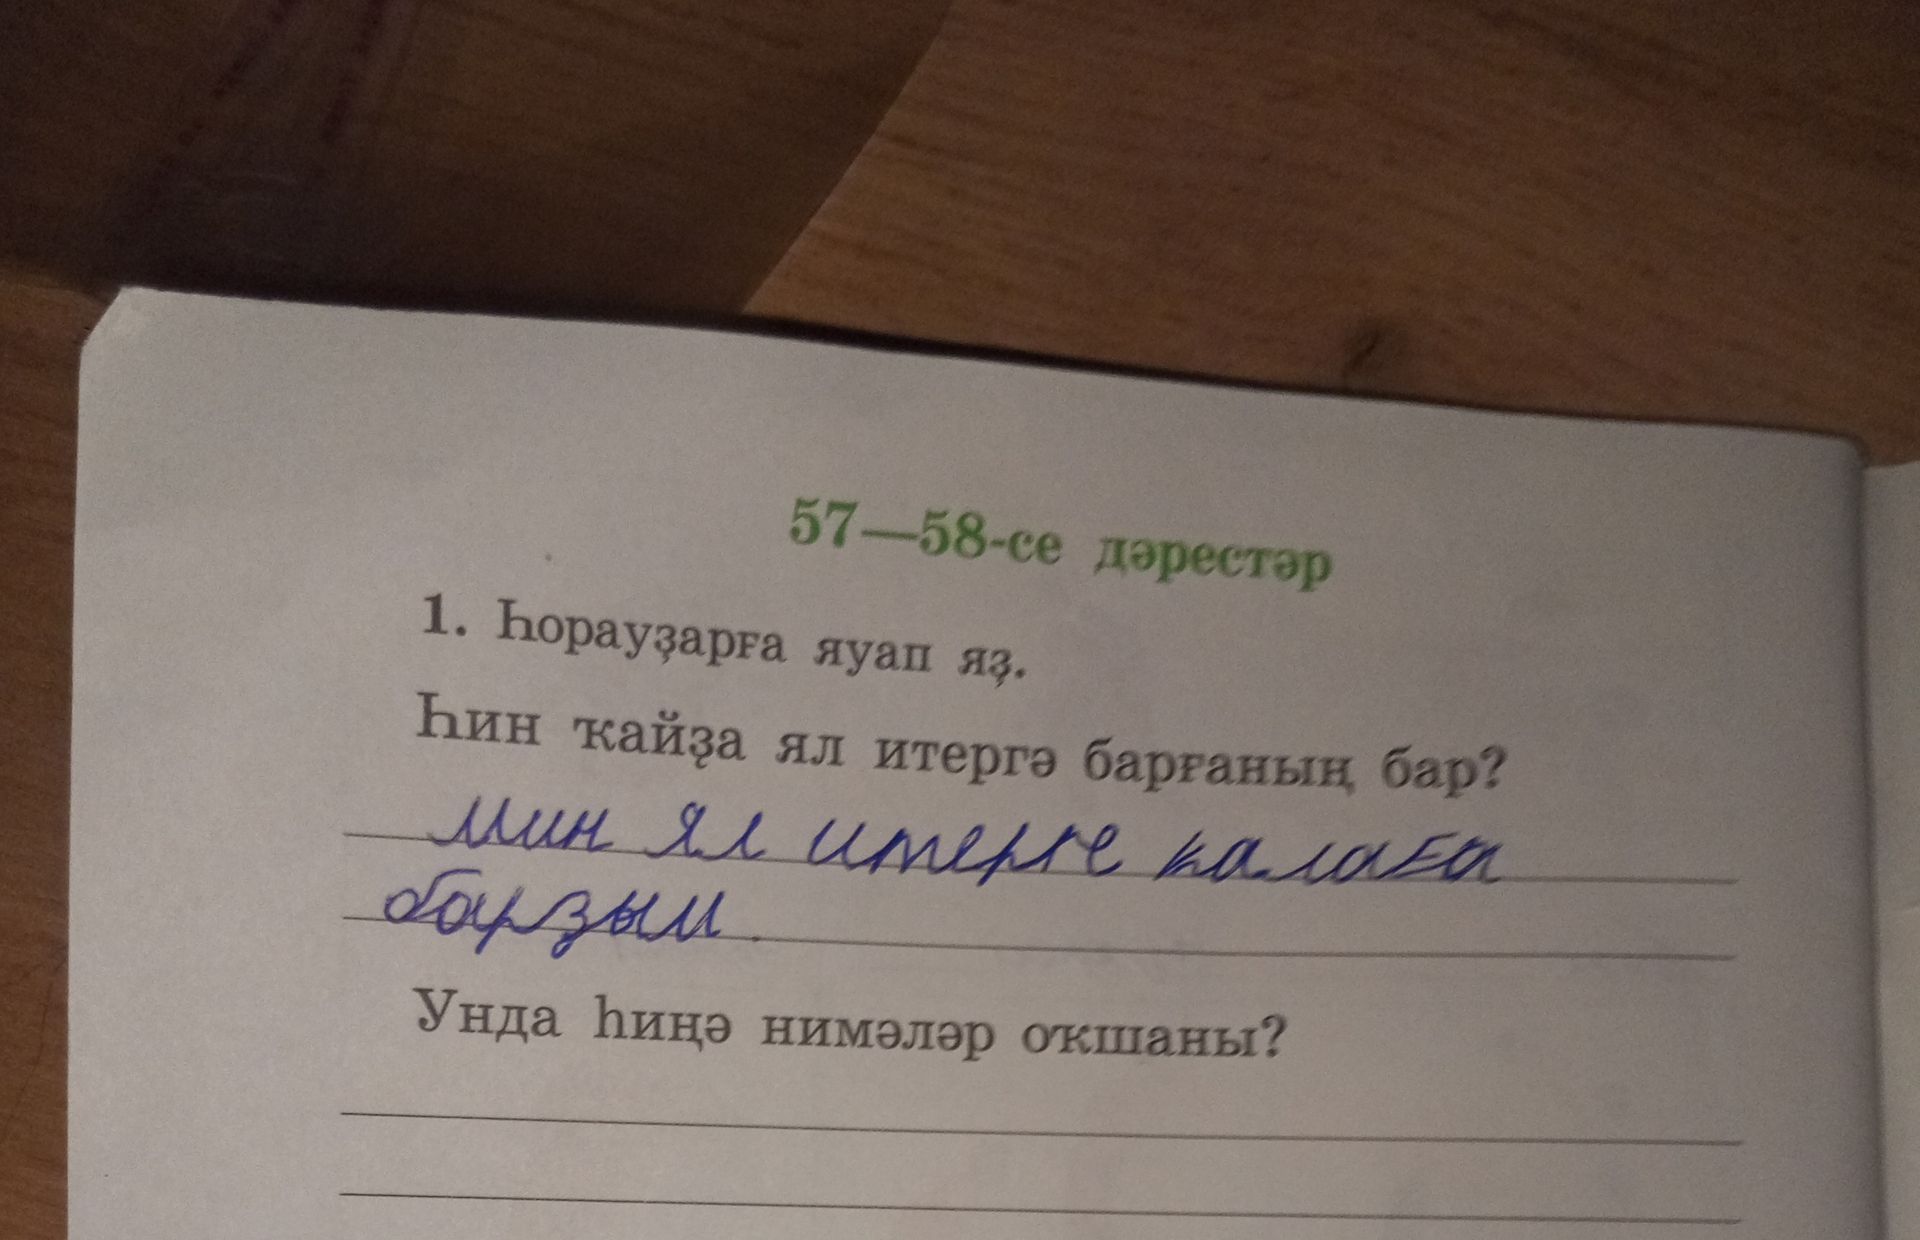 57—58-се дәрестәр
1. Һорауҙарға яуап яҙ.
Һин ҡайҙа ял итергә барғаның бар?
мин ял итерге калаға
барҙым.
Унда һиңә нимәләр оҡшаны?